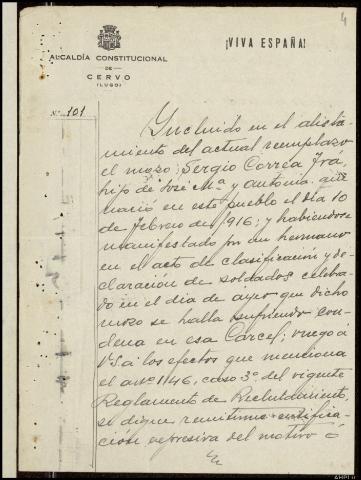 4
¡VIVA ESPAÑA!
ALCALDÍA CONSTITUCIONAL
DE
CERVO
(LUGO)
N.º 101
Incluido en el alista-
miento del actual reemplazo
el mozo; Sergio Correa Fra,
hijo de José Mª y Antonia que
nació en este pueblo el día 10
de febrero de 1916; y habiendose
manifestado por un hermano
en el acto de clasificación y de-
claración de soldados celebra-
do en el día de ayer que dicho
mozo se halla sufriendo con-
dena en esa Carcel; ruego á
V.S. á los efectos que menciona
el artº 146, caso 3º del vigente
Reglamento de Reclutamiento,
se digne remitirme certifica-
ción expresiva del motivo ó
AHPLU